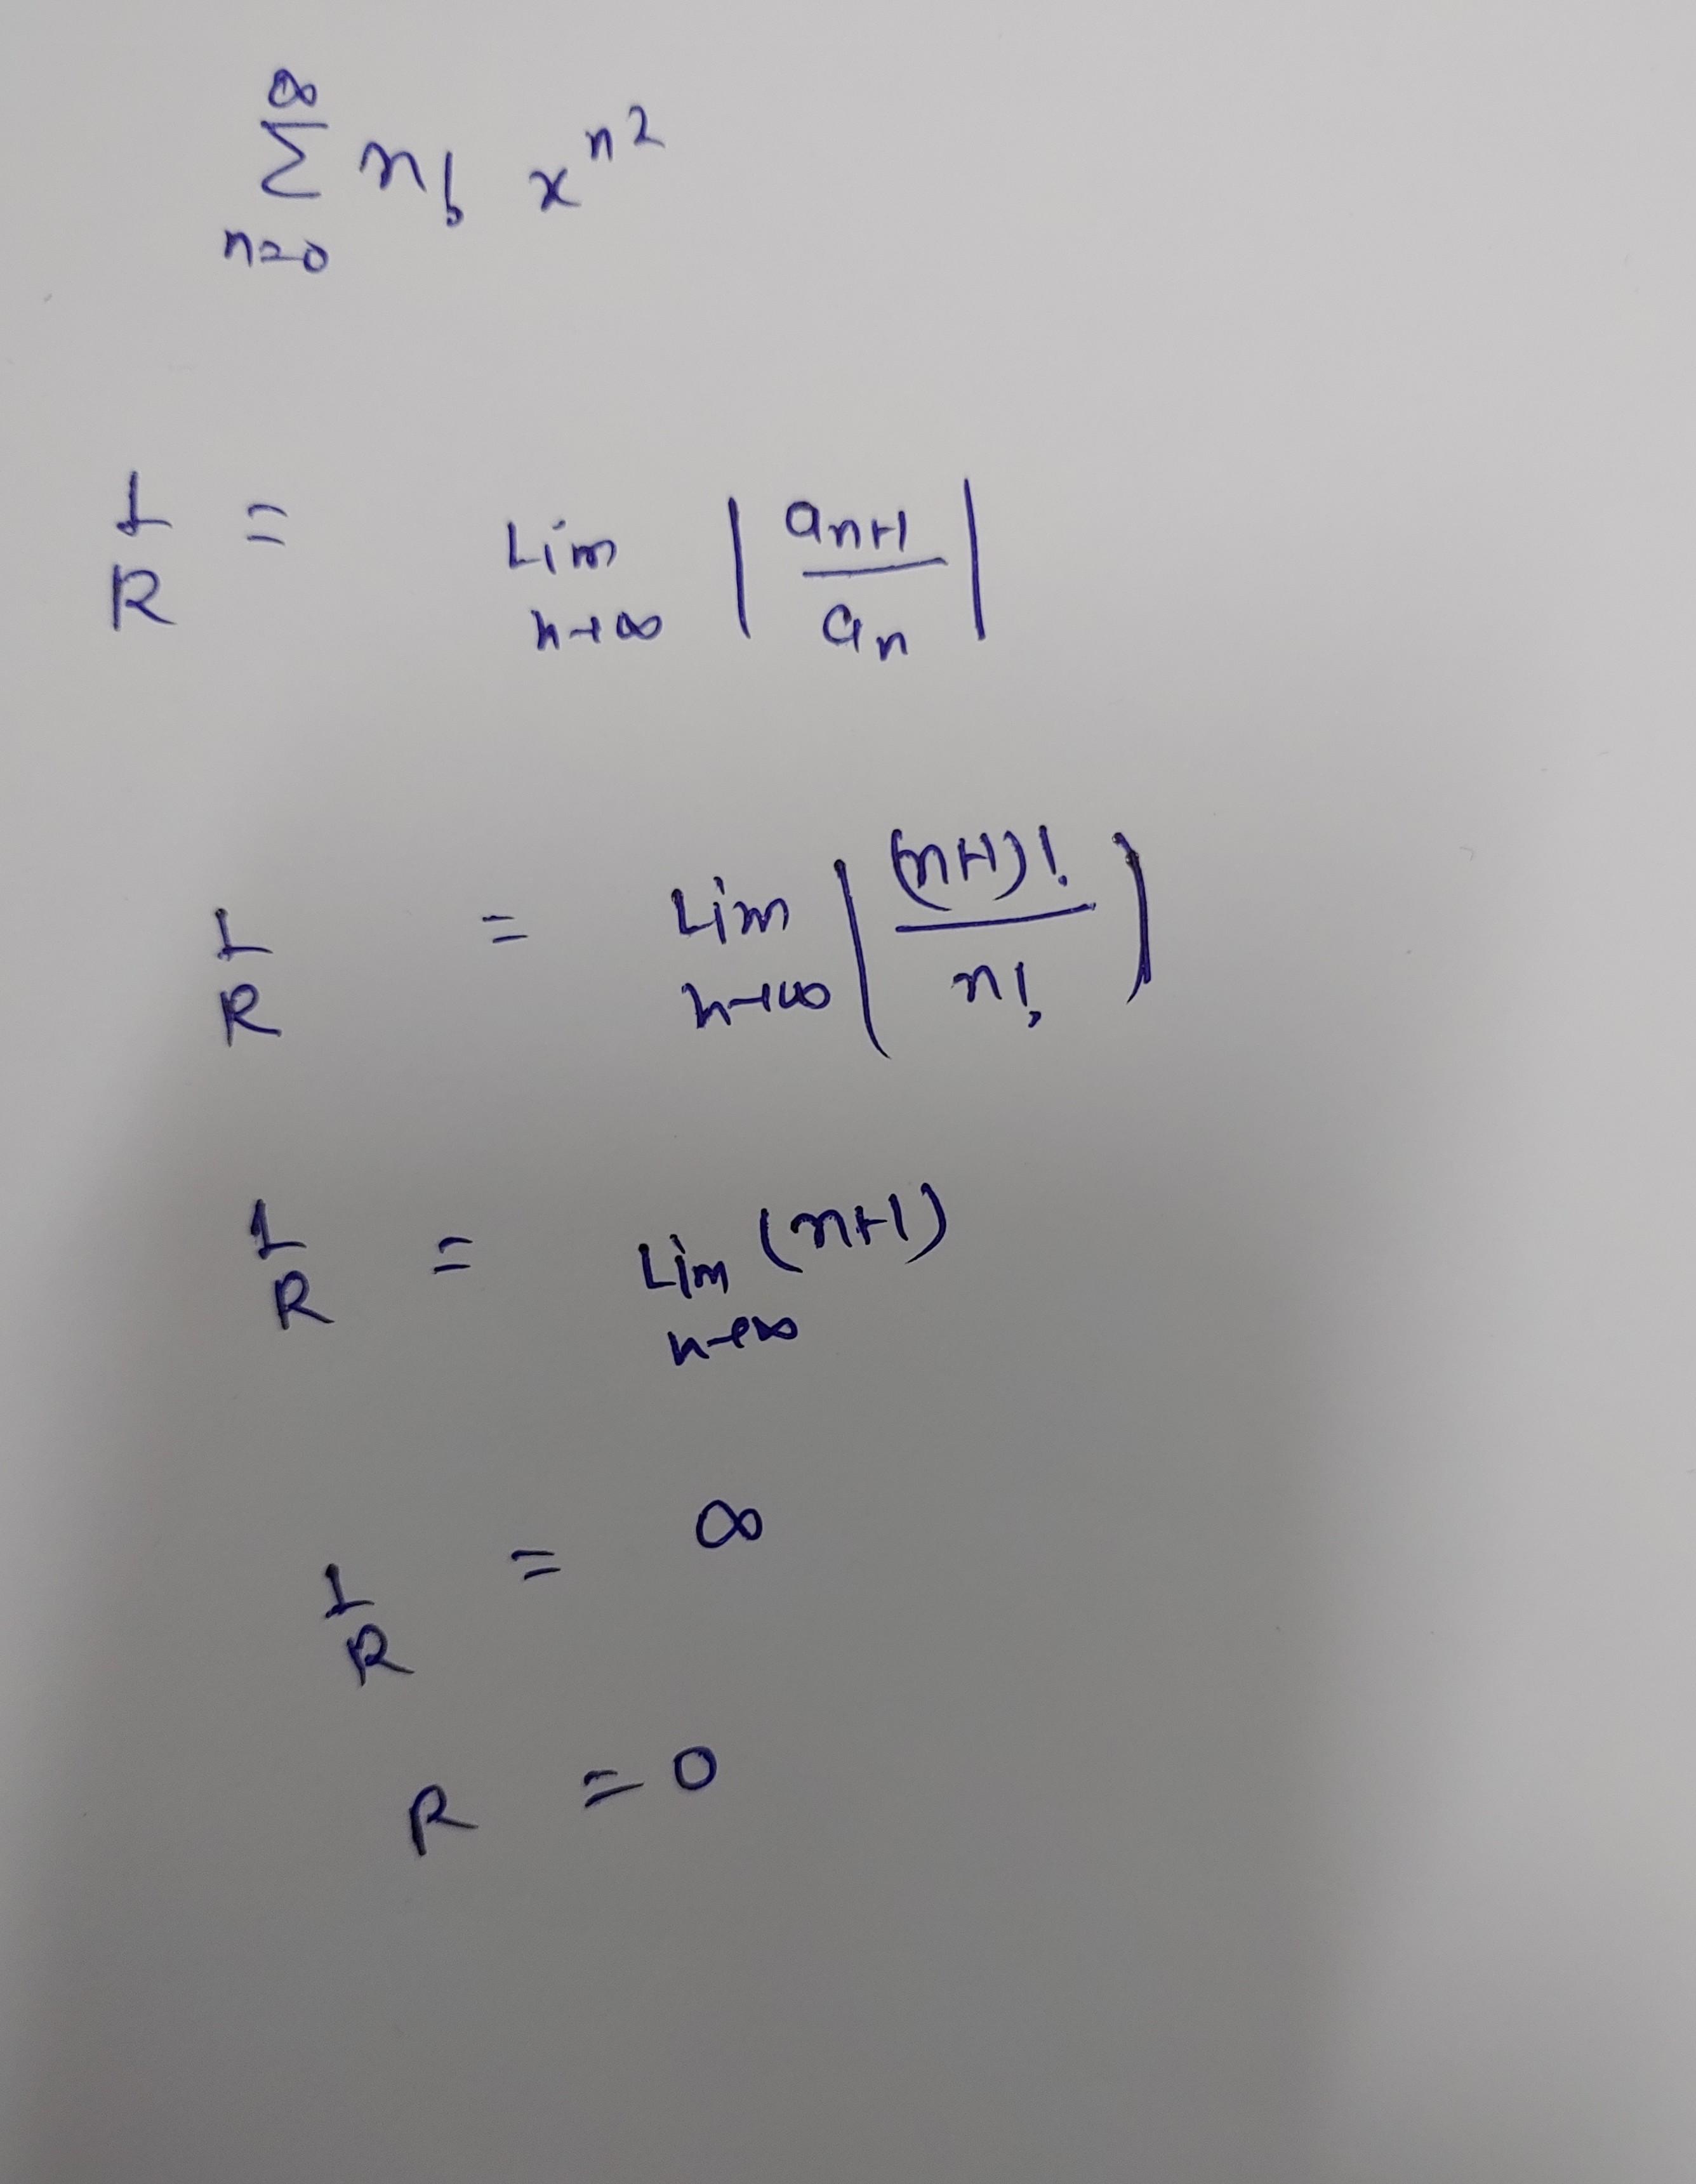 ∞
Σ n! x^n^2
n=0
1/R = Lim n→∞ | a_n+1 / a_n |
1/R = Lim n→∞ | (n+1)! / n! |
1/R = Lim n→∞ (n+1)
1/R = ∞
R = 0